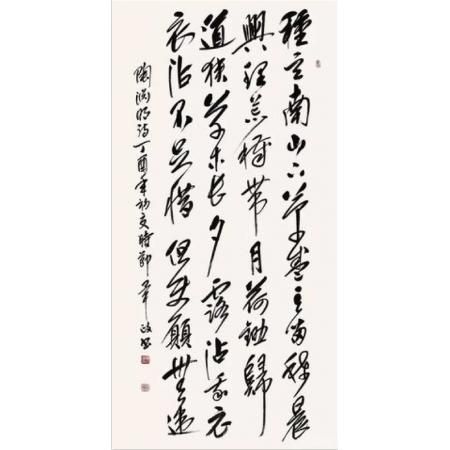 種豆南山下草盛豆苗稀晨
興理荒穢帶月荷鋤歸
道狹草木長夕露沾我衣
衣沾不足惜但使願無違
陶淵明詩丁酉年初夏時節政書